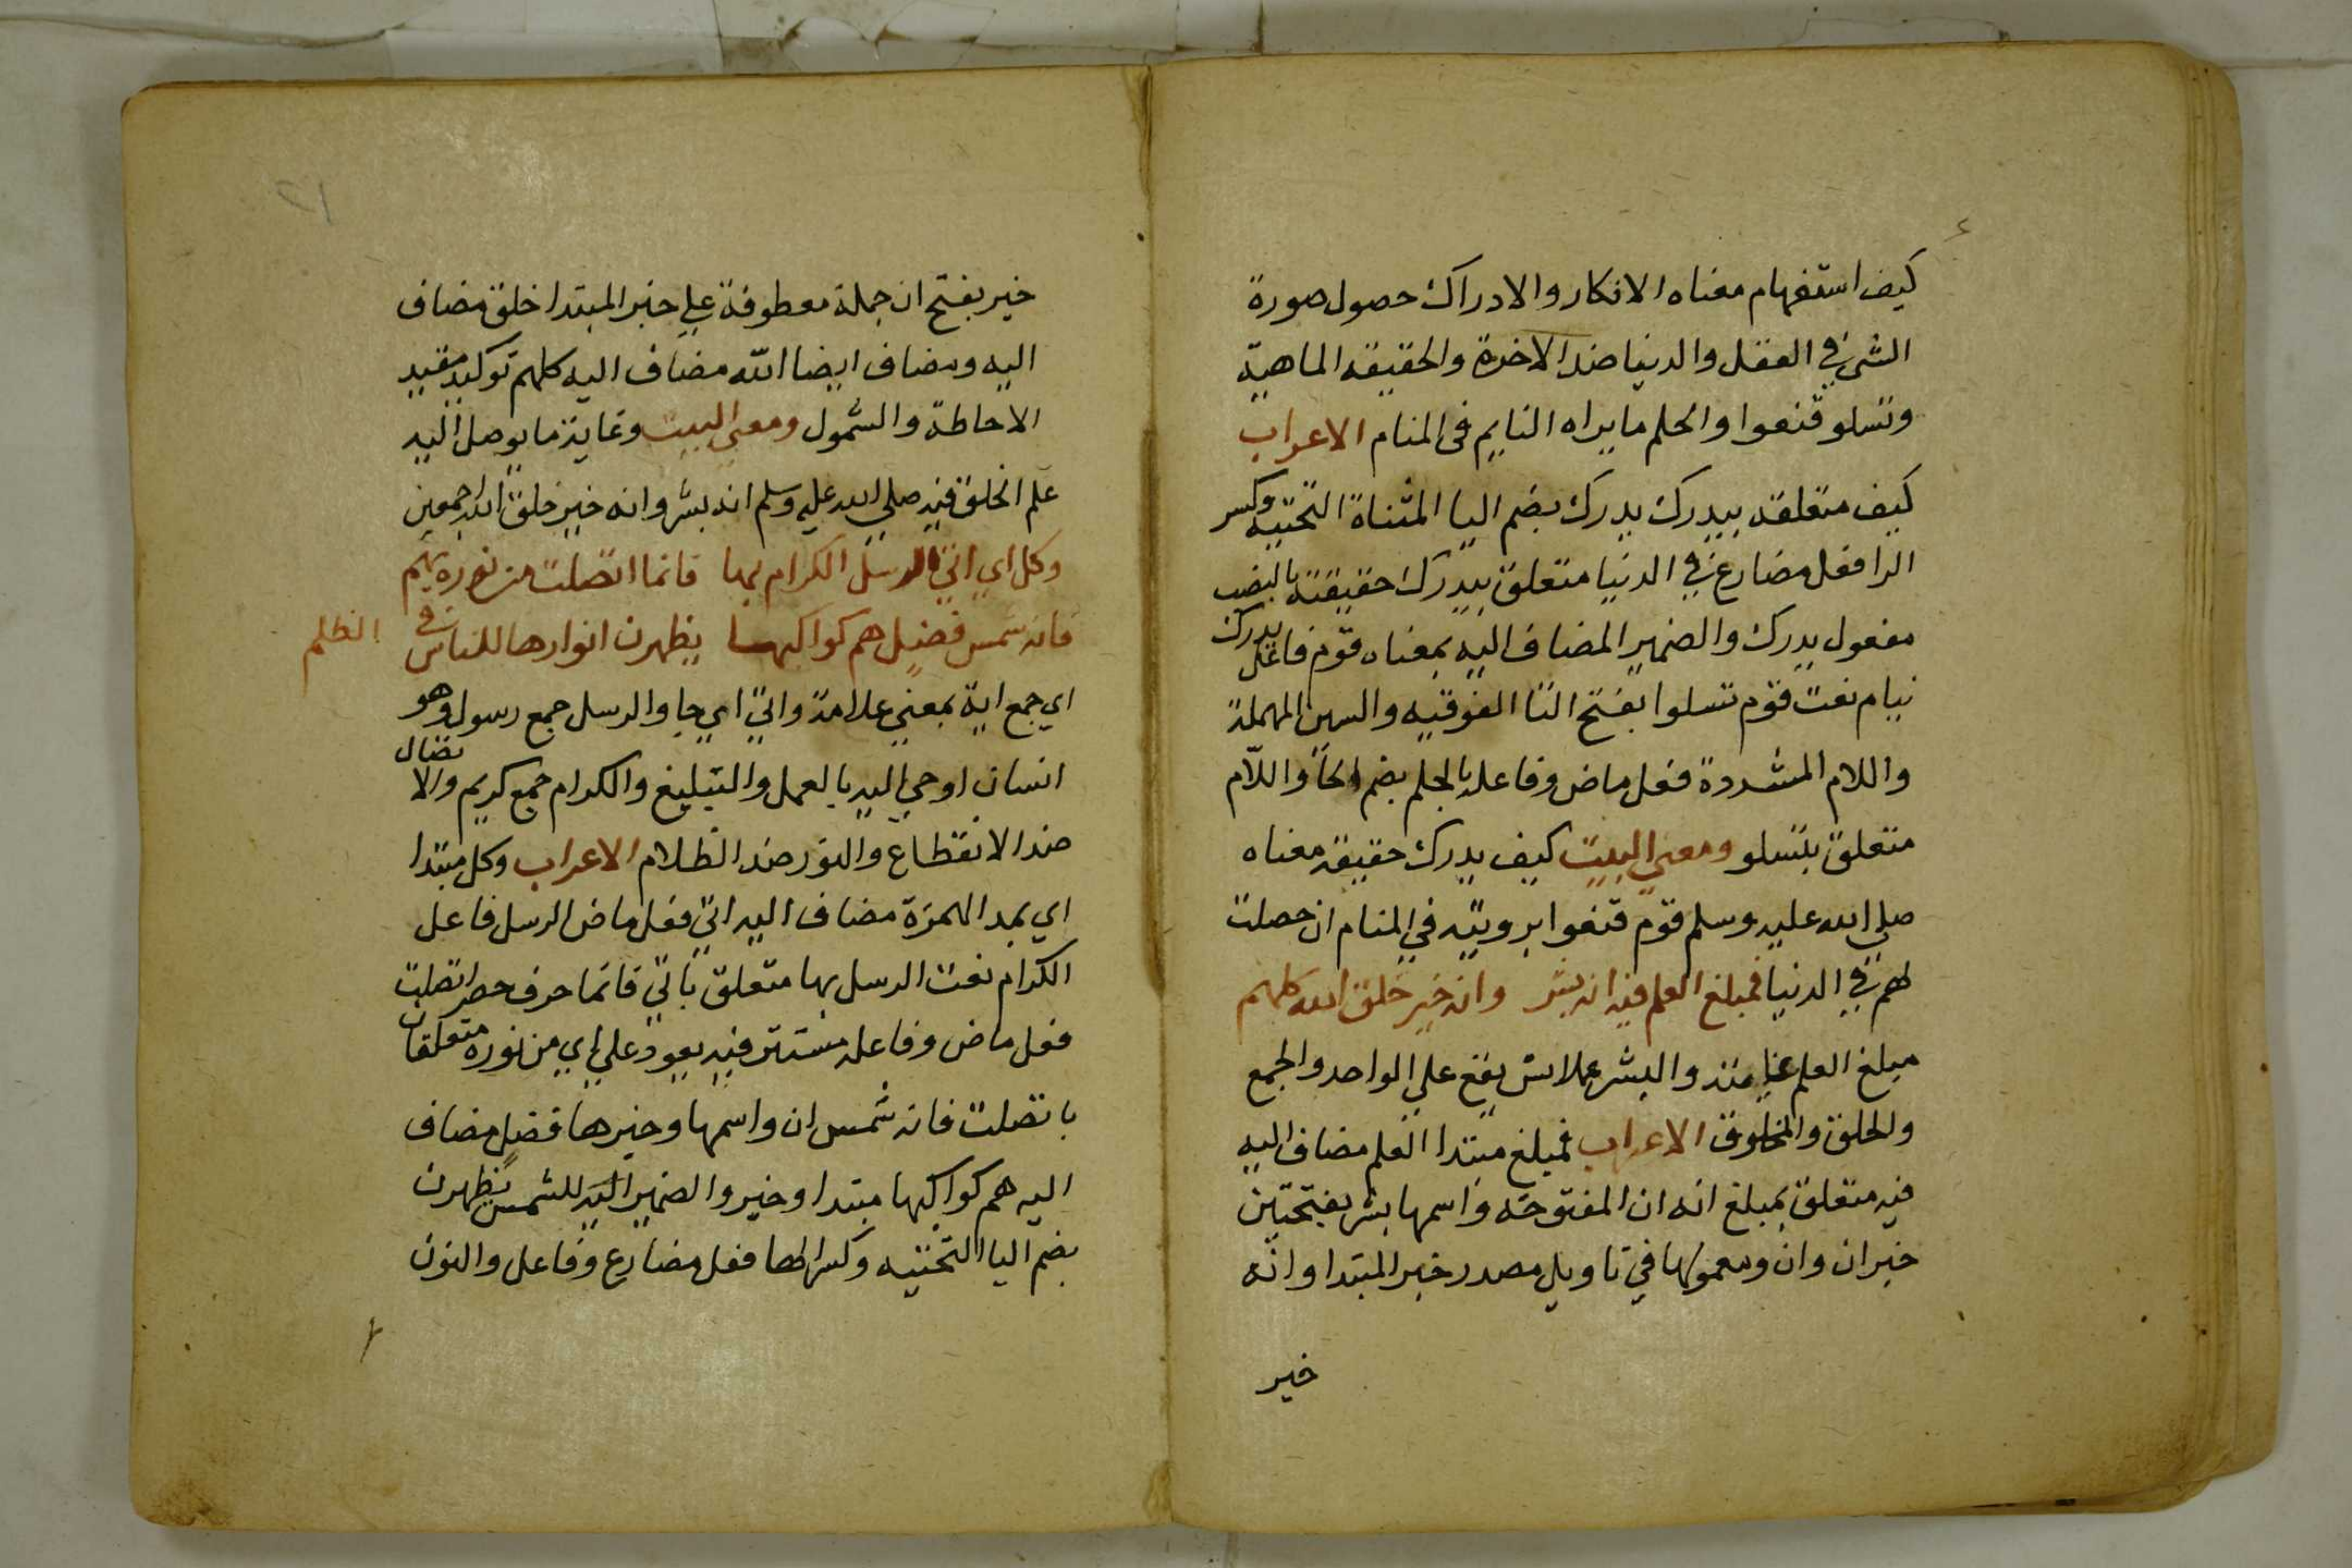 كيف استفهام معناه الانكار والادراك حصول صورة
الشي في العقل والدنيا ضد الاخرة والحقيقه الماهيّة
وتسلو قنعوا والحلم ما يراه النايم فى المنام الاعراب
كيف متعلقه بيدرك يدرك بضم اليا المثناة التحتيه وكسر
الرا فعل مضارع في الدنيا متعلق بيدرك حقيقته بالنصب
مفعول يدرك والضمير المضاف اليه بمعناه قوم فاعل يدرك
نيام نعت قوم تسلوا بفتح التا الفوقيه والسين المهملة
واللام المشددة فعل ماض وفاعله بالحلم بضم الحا واللّام
متعلق بتسلو ومعني البيت كيف يدرك حقيقة معناه
صلي الله عليه وسلم قوم قنعوا برويته في المنام ان حصلت
لهم في الدنيا فمبلغ العلم فيه انه بشر وانه خير خلق الله كلهم
مبلغ العلم غايته والبشر يقع علي الواحد والجمع
والخلق والمخلوق الاعراب فمبلغ مبتدا العلم مضاف اليه
فيه متعلق بمبلغ انه ان المفتوحه واسمها بشر بفتحتين
خبر ان وان ومعمولها في تاويل مصدر خبر المبتدا وانّه
خير
٢١
خير بفتح ان جملة معطوفة علي خبر المبتدا خلق مضاف
اليه ومضاف ايضا اللّه مضاف اليه كلهم توكيد مفيد
الاحاطة والشمول ومعني البيت وغاية ما يوصل اليه
علم الخلق فيه صلي الله عليه وسلم انه بشر وانه خير خلق الله اجمعين
وكل اي اتي الرسل الكرام بها فانما اتصلت من نوره بهم
فانه شمس فضل هم كواكبها يظهرن انوارها للناس في الظلم
اي جمع اية بمعني علامة واتي اي جا والرسل جمع رسول وهو
انسان اوحي اليه بالعمل والتبليغ والكرام جمع كريم والاتصال
ضد الانقطاع والنور ضد الظلام الاعراب وكل مبتدا
اي بمد الهمزة مضاف اليه اتي فعل ماض الرسل فاعل
الكرام نعت الرسل بها متعلق باتي فانما حرف حصر اتصلت
فعل ماض وفاعله مستتر فيه يعود علي اي من نوره متعلقان
باتصلت فانه شمس ان واسمها وخبرها فضل مضاف
اليه هم كواكبها مبتدا وخبر والضمير اليه للشمس يظهرن
بضم اليا التحتيه وكسر الها فعل مضارع وفاعل والنون